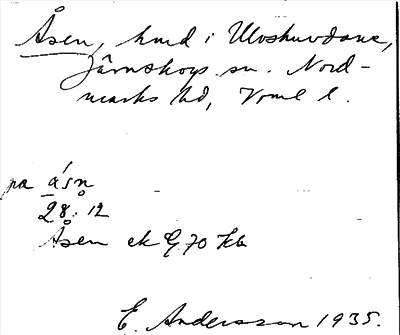 Åsen, hmd i Ulvshuvdane,
Järnskogs sn. Nord-
marks hd, Vrml l.
på å´sn̥
28. 12
Åsen ek G. 70 Kb
E. Andersson 1935.